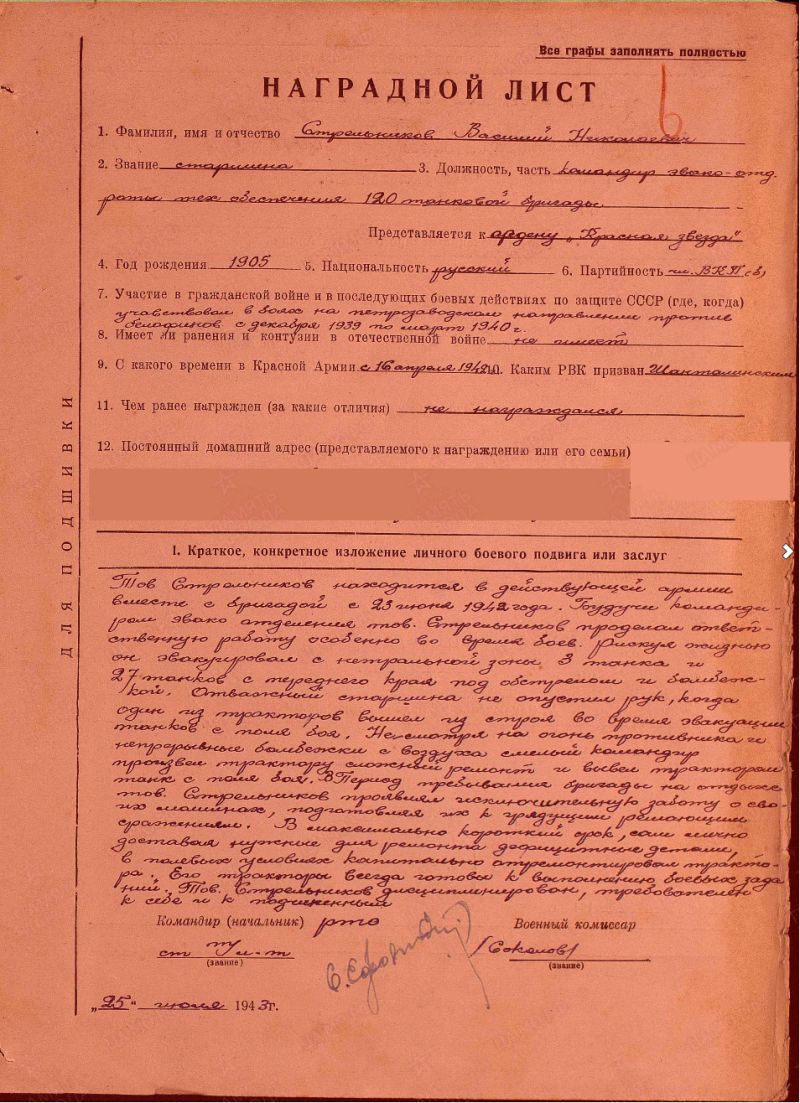 Все графы заполнять полностью
НАГРАДНОЙ ЛИСТ
6
1. Фамилия, имя и отчество Стрельников Василий Николаевич
2. Звание старшина 3. Должность, часть командир эвако-отд.
роты тех обеспечения 120 танковой бригады
Представляется к ордену „Красная звезда"
4. Год рождения 1905 5. Национальность русский 6. Партийность чл. ВКП(б)
7. Участие в гражданской войне и в последующих боевых действиях по защите СССР (где, когда)
учавствовал в боях на петрозаводском направлении против
белофинов с декабря 1939 по март 1940 г.
8. Имеет ли ранения и контузии в отечественной войне не имеет
9. С какого времени в Красной Армии с 16 апреля 1942 10. Каким РВК призван Шанталинским
11. Чем ранее награжден (за какие отличия) не награждался
12. Постоянный домашний адрес (представляемого к награждению или его семьи)
ДЛЯ ПОДШИВКИ
I. Краткое, конкретное изложение личного боевого подвига или заслуг
Тов Стрельников находится в действующей армии
вместе с бригадой с 23 июня 1942 года. Будучи команди-
ром эвако отделения тов. Стрельников проделал ответ-
ственную работу особенно во время боев. Рискуя жизнью
он эвакуировал с нетральной зоны 3 танка и
27 танков с переднего края под обстрелом и бомбеж-
кой. Отважный старшина не опустил рук, когда
один из тракторов вышел из строя во время эвакуации
танков с поля боя. Несмотря на огонь противника и
непрерывные бомбежки с воздуха смелый командир
произвел трактору сложный ремонт и вывел трактором
танк с поля боя. В Период пребывания бригады на отдыхе
тов. Стрельников проявлял исключительную заботу о сво-
их машинах, подготовляя их к грядущим решающим
сражениям. В максимально короткий срок, сам лично
доставая нужные для ремонта дефицитные детали,
в полевых условиях капитально отремонтировал тракто-
ра. Его тракторы всегда готовы к выполнению боевых зада
ний. Тов. Стрельников дисциплинирован, требователен
к себе и к подчиненным
Командир (начальник) рто Военный комиссар
ст л-т /Соколов/
(звание) (звание)
„25" июля 1943г.